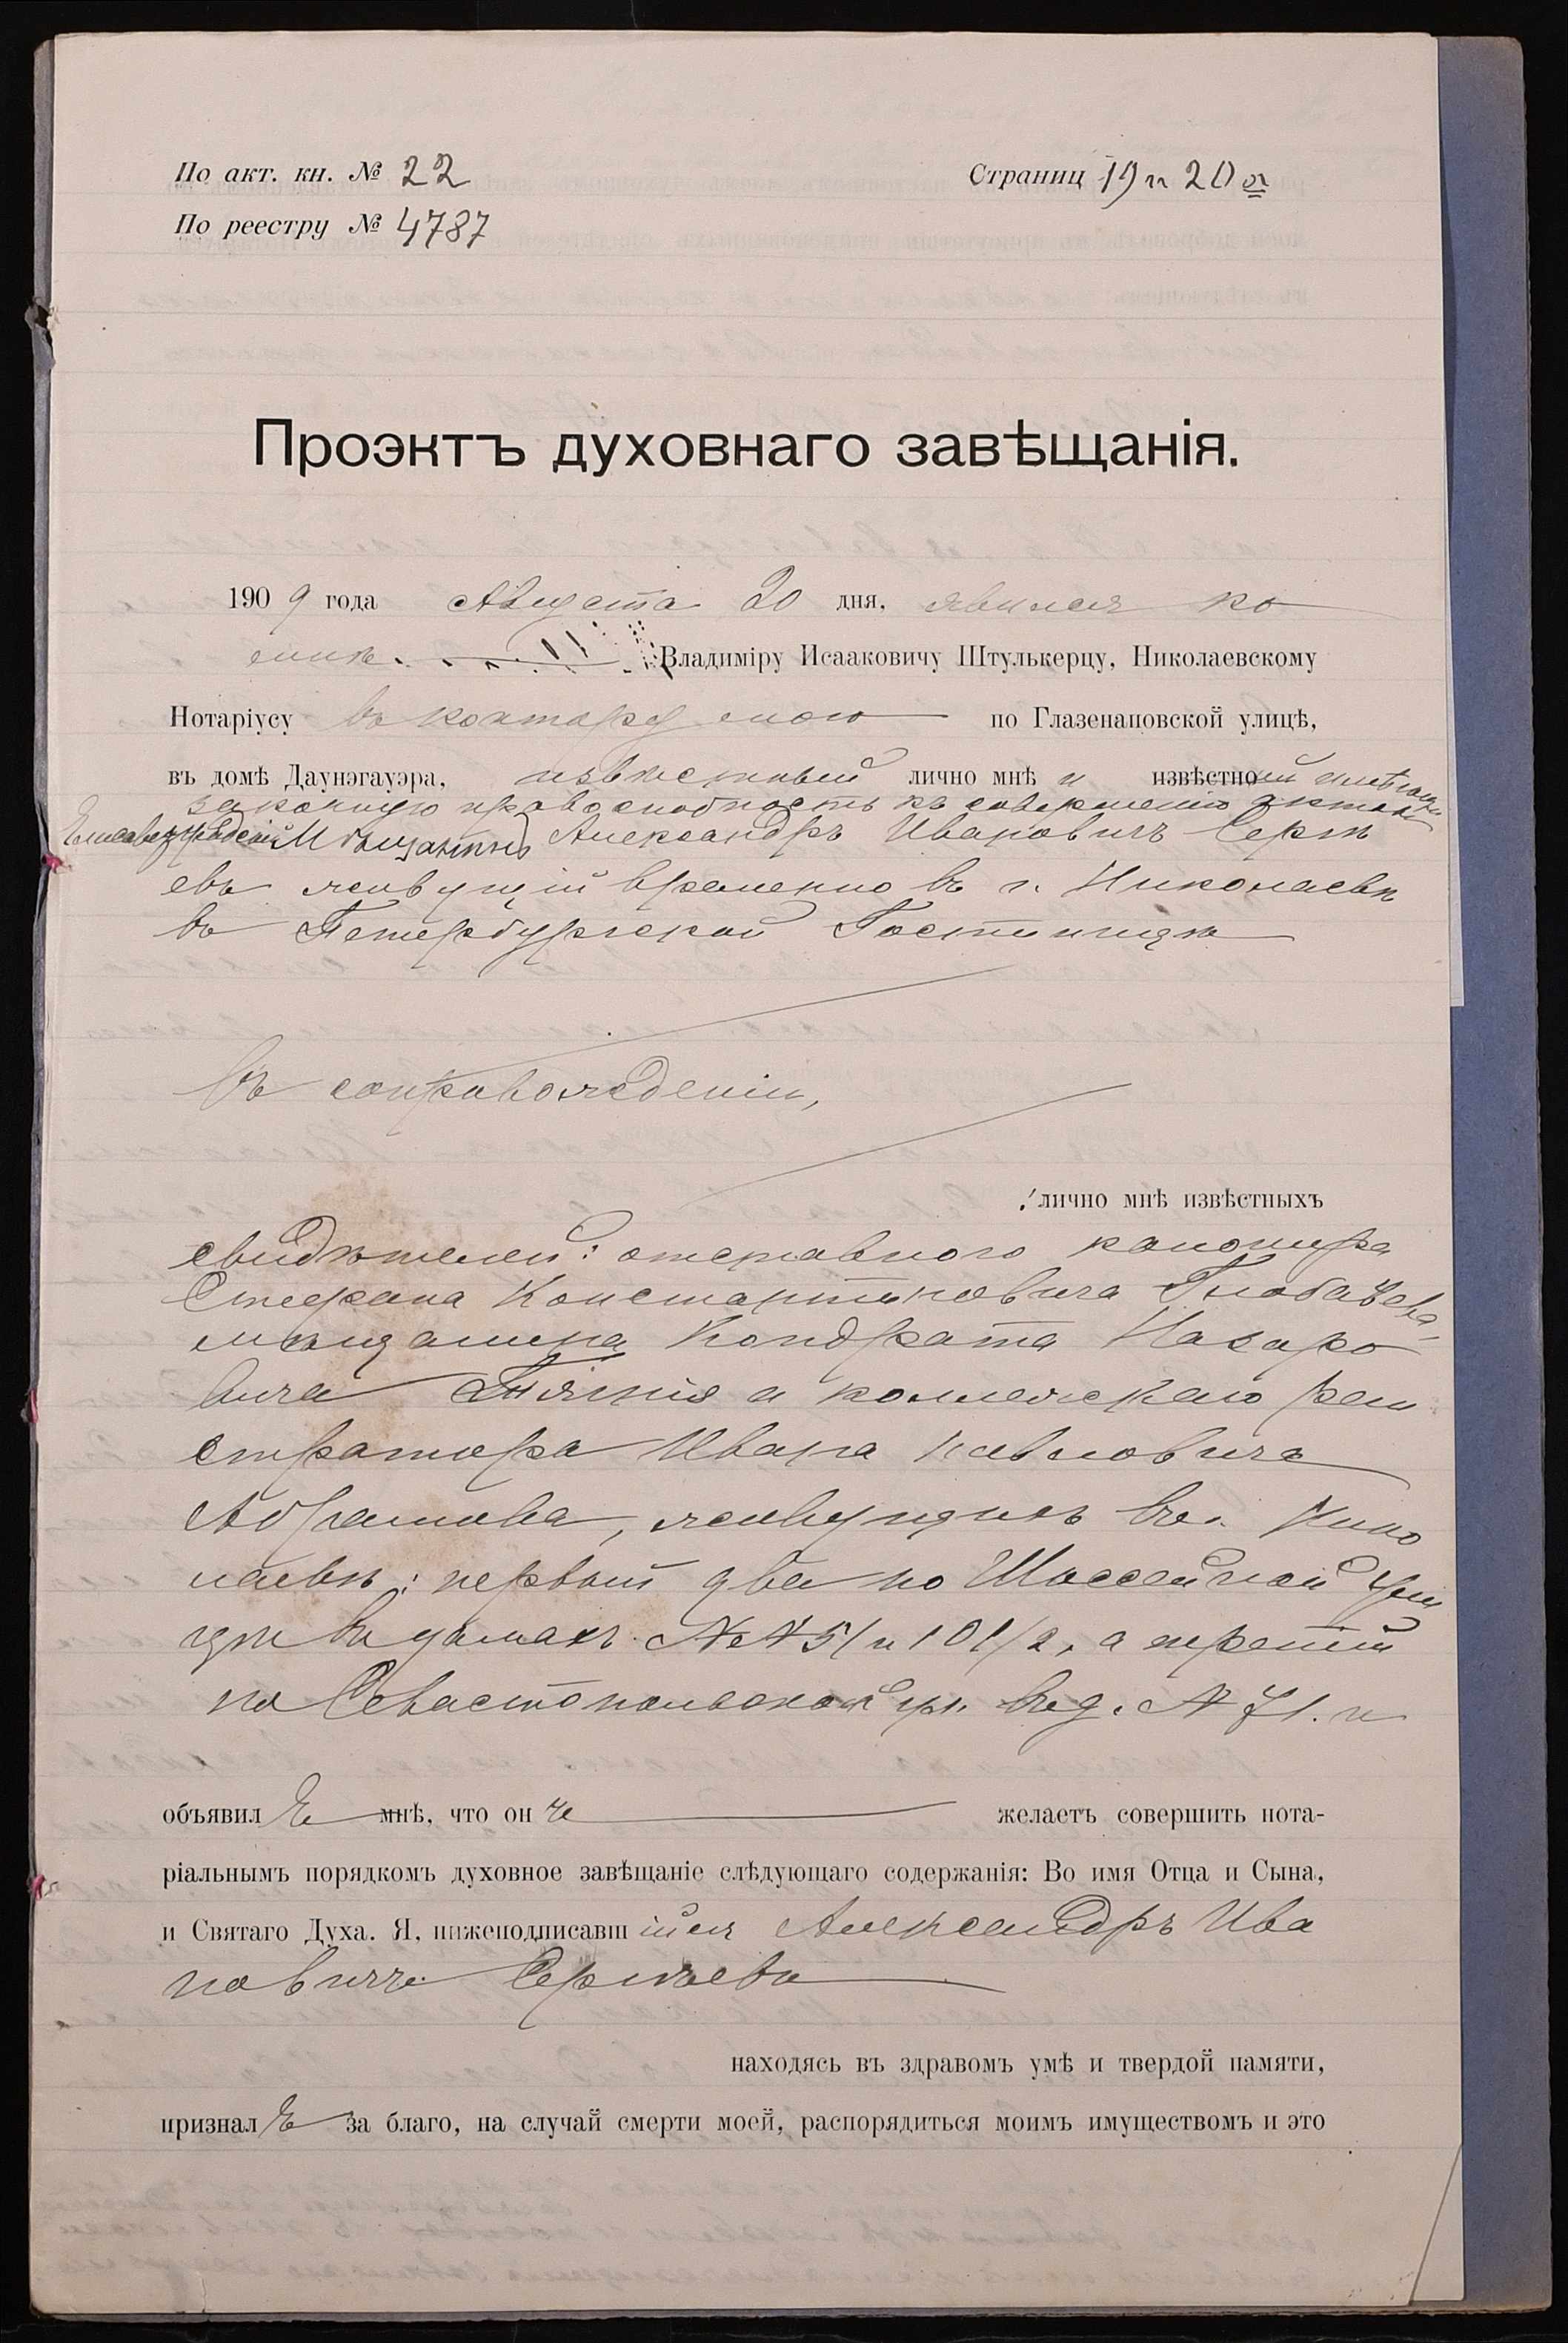 По акт. кн. № 22
Страниц 19 и 20 я
По реестру № 4787
Проэктъ духовнаго завѣщанія.
1909 года Августа 20 дня, явился ко
мнѣ Владиміру Исааковичу Штулькерцу, Николаевскому
Нотаріусу въ контору мою по Глазенаповской улицѣ,
въ домѣ Даунэгауэра, извѣстный лично мнѣ и извѣстно имѣющій
законную правоспособность къ совершенію актовъ
Елисаветградскій Мѣщанинъ Александръ Ивановичъ Сергѣ
евъ живущій временно въ г. Николаевѣ
въ Петербургской Гостинницѣ
Въ сопровожденіи,
лично мнѣ извѣстныхъ
свидѣтелей: отставного канонира
Стефана Константиновича
мѣщанина Кондрата Назаро
вича и коллежскаго реги
стратора Ивана Павловича
Абрамова, живущихъ въ г. Нико
лаевѣ: первый два по Шоссейной ули
цѣ въ домахъ №№ 51 и 101/2, а третій
по Севастопольской ул. въ д. № 71. и
объявилъ мнѣ, что онъ желаетъ совершить нота-
ріальнымъ порядкомъ духовное завѣщаніе слѣдующаго содержанія: Во имя Отца и Сына,
и Святаго Духа. Я, нижеподписавшійся Александръ Ива
новичъ Сергѣевъ
находясь въ здравомъ умѣ и твердой памяти,
призналъ за благо, на случай смерти моей, распорядиться моимъ имуществомъ и это